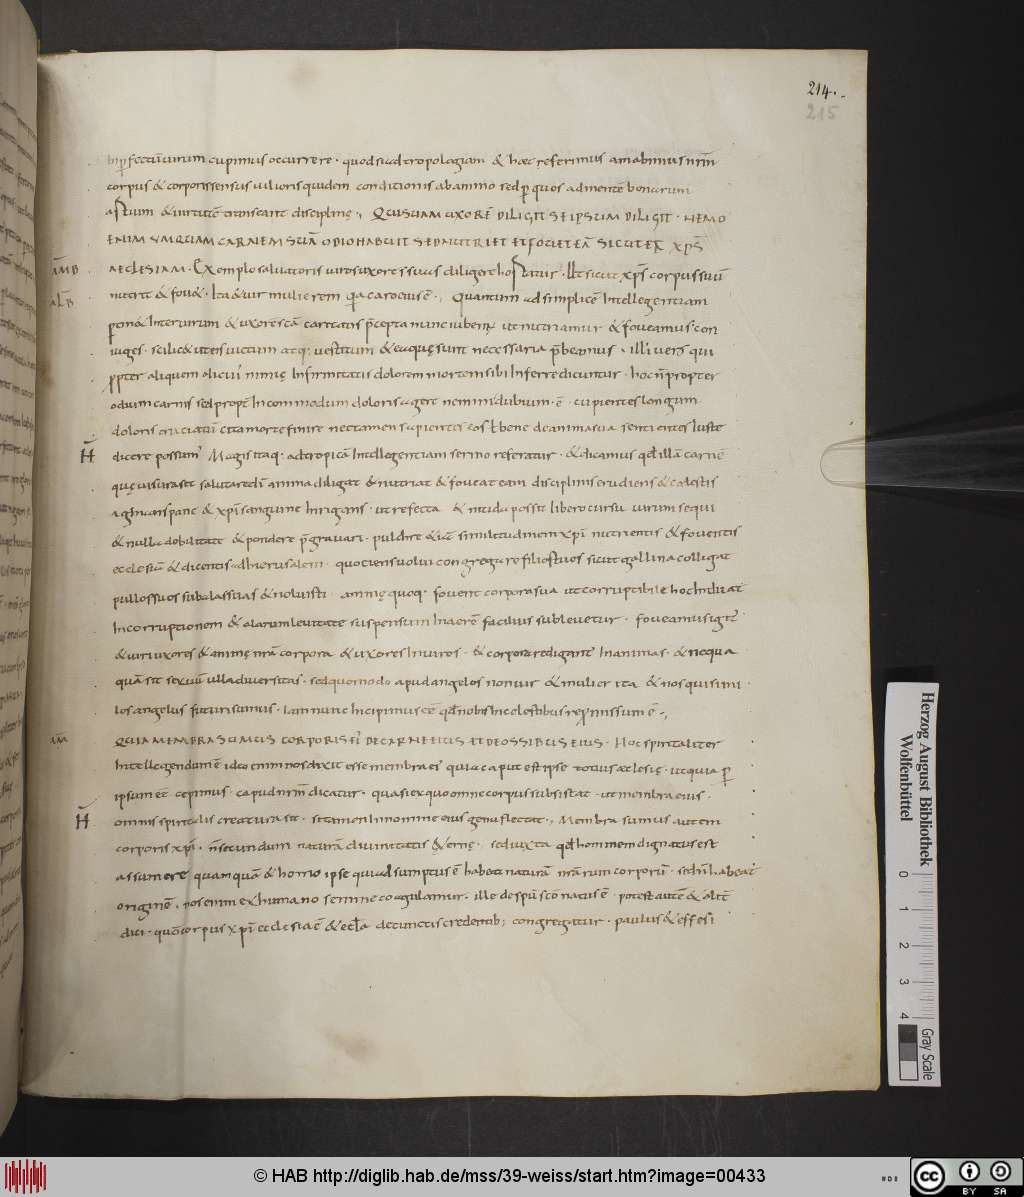 214.
215
in p̄fectū uirum cupimus occurrere · quodsi ad tropologiam & hæc referimus amabimus nr̄m
corpus & corporis sensus uilioris quidem conditionis ab animo sed p̱ quos ad mentē bonarum
disciplinę · QUI SUAM UXORĒ DILIGIT SEIPSUM DILIGIT · NEMO
ENIM UMQUAM CARNEM SUĀ ODIO HABUIT SED NUTRIET ET FOUET EĀ SICUT ET XP̄S
ĀMB
AECLESIAM · Exemplo saluatoris uiros uxores suas diligere hortatur · Ut sicut xp̄s corpus suū
nutrit & fou& · Ita & uir mulierem quia caro eius ē · Quantum ad simplicē Intellegentiam
AL̄B
&Inter uirum & uxorē scām caritatis p̄cepta nunc iuben̄t ut nutriamur & foueamus con
iuges · scilic& ut eis uictum atq; uestitum & ea quę sunt necessaria p̄beamus · illi uero qui
ppter aliquem nimię Infirmitatis dolorem mortem sibi Inferre dicuntur · hoc n̄ propter
odium carnis sed propt̄ Incommodum doloris agere nemini dubium · ē · cupientes longum
doloris cruciatū cita morte finire nec tamen sapientes eos ł bene de anima sua sentientes Iuste
H̄
dicere possum̄ · Magis itaq· ad tropicā Intellegentiam sermo referatur · & dicamus qđ illā carnē
quę uisura sit salutare dī anima diligat & nutriat & foueat eam disciplinis erudiens & cælestis
agni saginans pane & xp̄i sanguine Inrigans · ut refecta & nitida possit libero cursu uirum sequi
& nulla debilitate & pondere p̄grauari · pulchre &iā similitudinem xp̄i nutrientis & fouentis
ecclesiā & dicentis ad hierusalem · quotiens uolui congregare filios tuos sicut gallina colligat
pullos suos sub alas suas & noluisti · animę quoq· fouent corpora sua ut corruptibile hoc Induat
Incorruptionem & alarum leuitate suspensum In aerē facilius subleuetur · foueamus igit̄
& uiri uxores & animę nr̄ā corpora & uxores In uiros · & corpora redigant̄ In animas · & nequa
quā sit sexuū ulla diuersitas · sed quomodo apud angelos non uir & mulier ita & nos qui simi
les angelis futuri sumus · Iam nunc Incipimus eē qđ nobis In cælestibus repromissum ē ·
ĪM
QUIA MEMBRA SUMUS CORPORIS EI' DE CARNE EIUS ET DE OSSIBUS EIUS · Hoc spiritaliter
Intellegendum ē ideo enim nos dixit esse membra ei' quia caput est ipse totius æclesię · ut quia p̱
ipsum eē cepimus · caput nr̄m dicatur · quasi ex quo omne corpus subsistat · ut membra eius ·
H̄
omnis spiritalis creatura sit · si tamen In nomine eius genu flectat · Membra sumus autem
corporis xp̄i · n̄ secundum naturā diuinitatis &ernę · sed iuxta qđ hominem dignatus est
assumere quamquā & homo ipse qui adsumptus ē habeat naturā nr̄ārum corporū · sed n̄ habeat
originē · nos enim ex humano semine coagulamur · ille de spū sc̄o natus ē · potest autē & alit̄
dici · quā corpus xp̄i ecclesia ē & eccl̄a de cunctis credentib; congregatur · paulus & effesi
Herzog August Bibliothek
Wolfenbüttel
0 1 2 3 4
Gray Scale
© HAB http://diglib.hab.de/mss/39-weiss/start.htm?image=00433
cc BY SA